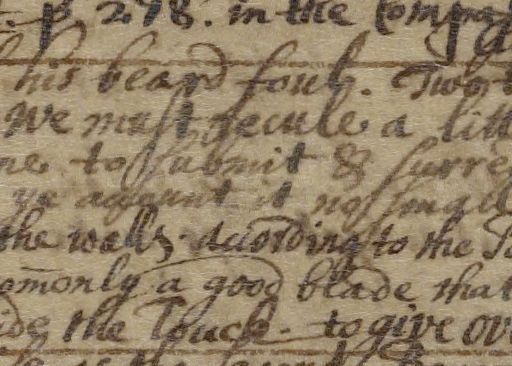 p 278. in the
his beard foul. Two
We must recule a litt
me to submit & surre
ye account it no small
the walls. According to the
omonly a good blade that
ide the Touch. to give ov